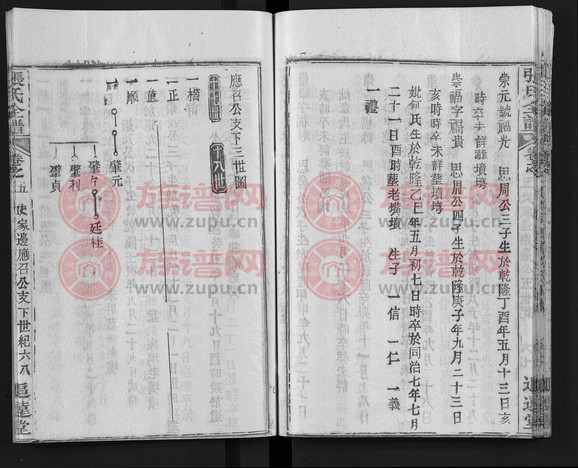 崇元號福光 思周公三子生於乾隆丁酉年五月十三日亥
時卒未詳葬墳塝
崇福字福貴 思周公四子生於乾隆庚子年九月二十三日
亥時時卒未詳葬墳塝
妣何氏生於乾隆乙巳年五月初七日時卒於同治七年七月
二十一日酉時葬老墳塝 生子 一信 一仁 一義
一禮
追遠堂
張氏全譜
卷之五
史家邊應召公支下世紀六八
追遠堂
應召公支下三世圖
十八世
一楷
一正
一魚
一順
肇元
廷桂
肇利
肇貞
族谱网
www.zupu.cn
族谱网
www.zupu.cn
族谱网
www.zupu.cn
族谱网
www.zupu.cn